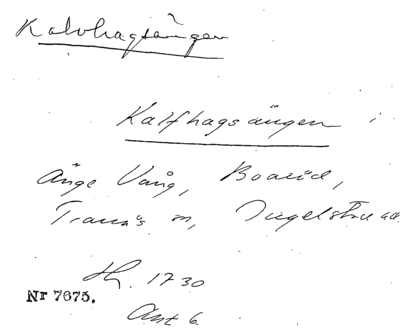 Kalvhagsängen
Kalfhagsängen i
Änge Vång, Boaröd,
Tranås sn, Ingelstad
H. 1730
Nr 7675.
Akt 6